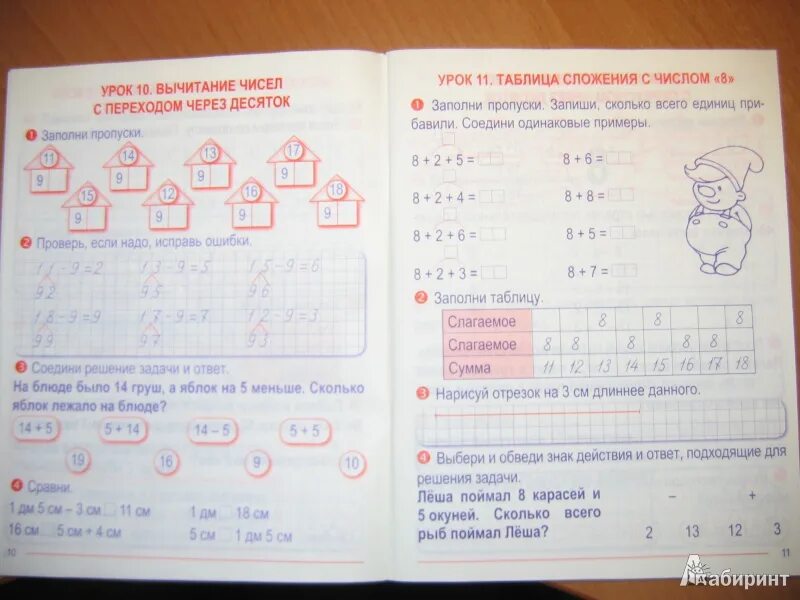 УРОК 10. ВЫЧИТАНИЕ ЧИСЕЛ
С ПЕРЕХОДОМ ЧЕРЕЗ ДЕСЯТОК
1 Заполни пропуски.
11 14 13 17
9 9 9 9
15 12 16 18
9 9 9 9
2 Проверь, если надо, исправь ошибки.
11-9=2 13-9=5 15-9=6
92 95 96
18-9=9 17-9=7 12-9=3
99 97 93
3 Соедини решение задачи и ответ.
На блюде было 14 груш, а яблок на 5 меньше. Сколько
яблок лежало на блюде?
14 + 5 5 + 14 14 – 5 5 + 5
19 16 9 10
4 Сравни.
1 дм 5 см – 3 см □ 11 см 1 дм □ 18 см
16 см □ 5 см + 4 см 5 см □ 1 дм 5 см
10
УРОК 11. ТАБЛИЦА СЛОЖЕНИЯ С ЧИСЛОМ «8»
1 Заполни пропуски. Запиши, сколько всего единиц при-
бавили. Соедини одинаковые примеры.
8 + 2 + 5 = 8 + 6 =
8 + 2 + 4 = 8 + 8 =
8 + 2 + 6 = 8 + 5 =
8 + 2 + 3 = 8 + 7 =
2 Заполни таблицу.
Слагаемое 8 8 8
Слагаемое 8 8 8 8 8
Сумма 11 12 13 14 15 16 17 18
3 Нарисуй отрезок на 3 см длиннее данного.
4 Выбери и обведи знак действия и ответ, подходящие для
решения задачи.
Лёша поймал 8 карасей и
5 окуней. Сколько всего
рыб поймал Лёша?
– +
2 13 12 3
11
Лабиринт